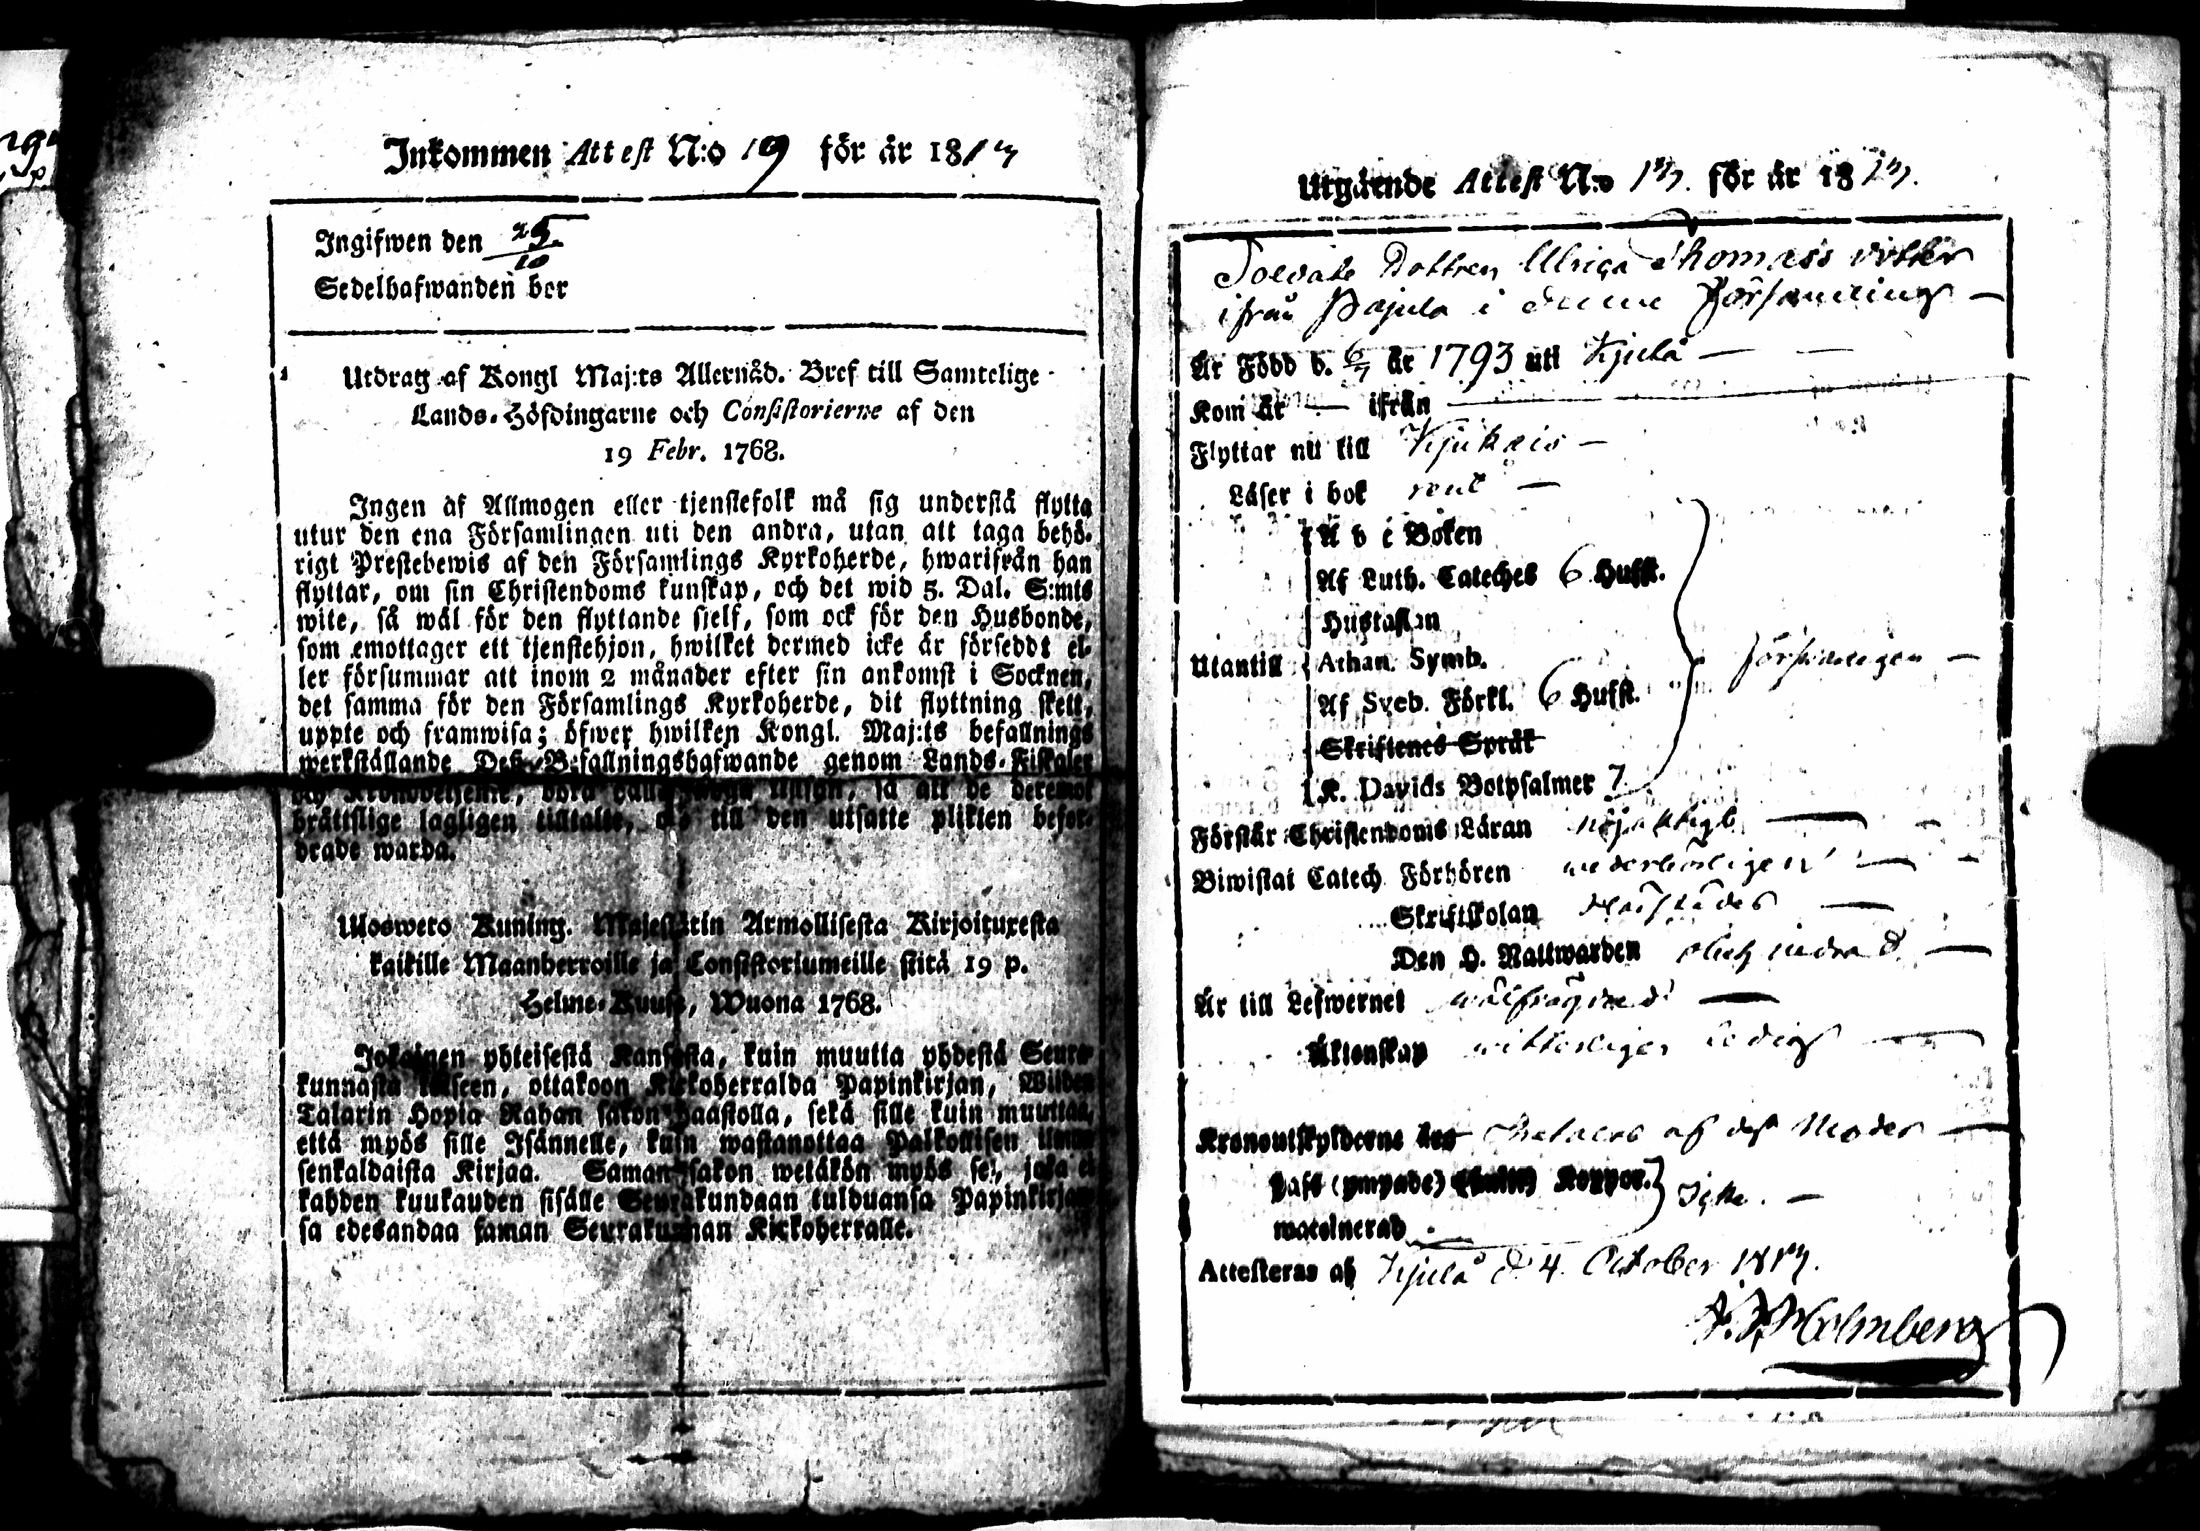 Inkommen Attest N:o 19 för år 1817
Ingifwen den 25/10
Sedelhafwanden bor
Utdrag af Kongl Maj:ts Allernåd. Bref till Samtelige
Lands-Höfdingarne och Consistorierne af den
19 Febr. 1768.
Ingen af Allmogen eller tjenstefolk må sig understå flytta
utur den ena Församlingen uti den andra, utan att taga behö-
rigt Prestebewis af den Församlings Kyrkoherde, hwarifrån han
flyttar, om sin Christendoms kunskap, och det wid 5. Dal. S:mts
wite, så wäl för den flyttande sjelf, som ock för den Husbonde,
som emottager ett tjenstehjon, hwilket dermed icke är förseddt el-
ler försummar att inom 2 månader efter sin ankomst i Socknen,
det samma för den Församlings Kyrkoherde, dit flyttning skett,
uppte och framwisa; öfwer hwilken Kongl. Maj:ts befallnings
werkställande Deß Befallningshafwande genom Lands-Fiskaler
så att de deremot
brättslige lagligen tilltalte, och till den utsatte plikten befor-
drade warda.
Uloswero Kuning. Majestetin Armollisesta Kirjoituxesta
kaikille Maanherroille ja Consistoriumeille siitä 19 p.
Helme-Kuusa, Wuona 1768.
Jokainen yhteisestä Kansasta, kuin muutta yhdestä Seura-
kunnasta toiseen, ottakoon Kirkoherralda Papinkirjan, Wiiden
Talarin Hopia Rahan sakon haastolla, sekä sille kuin muuttaa,
että myös sille Isännelle, kuin wastanottaa Palkollisen ilman
senkaldaista Kirjaa. Saman sakon wetäkön myös se, joka ei
kahden kuukauden sisälle Seurakundaan tulduansa Papinkirjaan-
sa edesandaa saman Seurakunnan Kirkoherralle.
Utgående Attest N:o 17. för år 1817.
Soldats Dottren Ulrica Thomas dotter
ifrån Pajula i denne Församling —
Är Född d. 6/7 år 1793 uti Kjulå —
Kom år — ifrån —
Flyttar nu till Kjukais —
Läser i bok rent —
A b c Boken
Af Luth. Cateches 6 Hufst.
Hustaflan
Utantill Athan. Symb. försvarligen —
Af Sveb. Förkl. 6 Hufst.
Skriftenes Språk
K. Davids Botpsalmer 7
Förstår Christendoms Läran nöjaktigt —
Biwistat Catech. Förhören wederbörligen —
Skriftskolan
Den H. Nattwarden
Är till Lefwernet wälfrägdad —
Äktenskap witterligen ledig —
Kronoutskylderne betalas af deß Moder —
Haft (ympade) Koppor. Icke. —
waccinerad
Attesteras af Kjulå d. 4. October 1817.
Holmberg